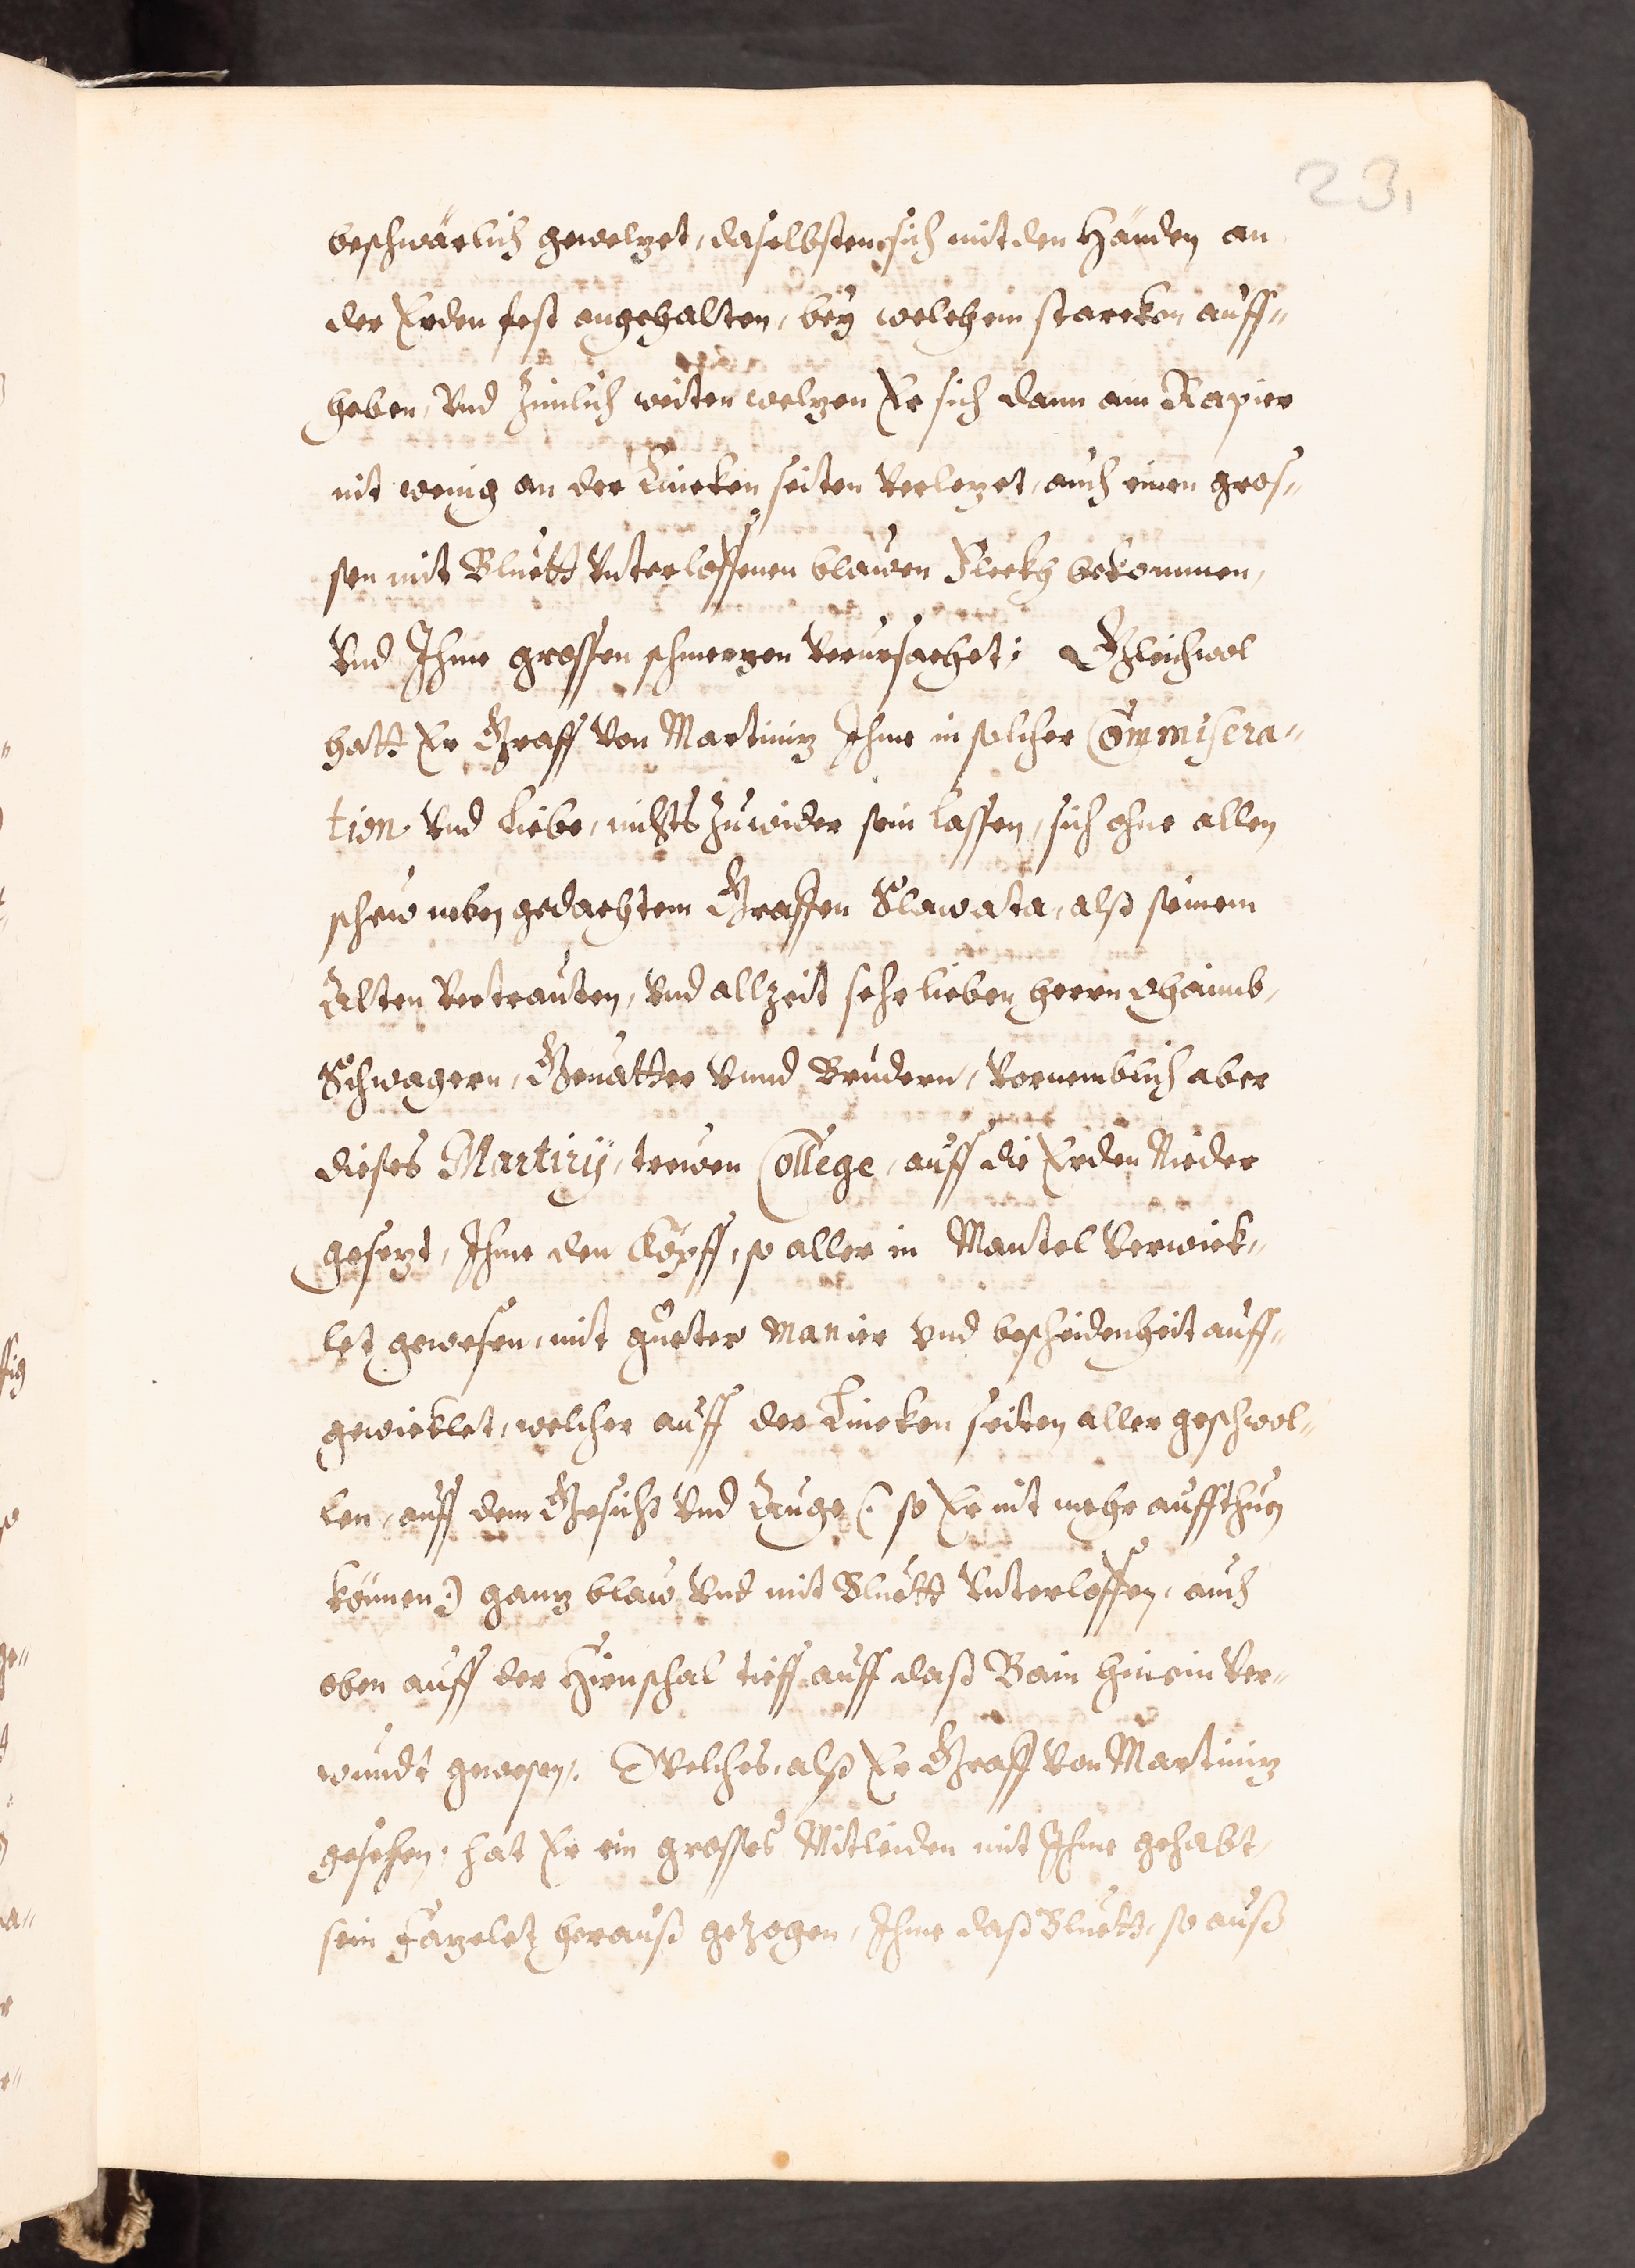 23.
beschwärlich gewelzet, daselbsten sich mit den Händen an
der Erden fest angehalten, bey welchem starcken auff„
heben, Vnd zimlich weiten welzen Er sich dann am Rapier
nit wenig an der Lincken seiten Verlezet, auch einen gros„
sen mit Bluett Vnterloffenen blauen Fleckh bekommen,
Vnd Ihme grossen schmerzen Verursachet; Gleichwol
hatt Er Graff Von Martiniz Ihme in solcher Commisera„
tion Vnd Liebe, nichts zuwider sein lassen, sich ohne allen
schew neben gedachtem Graffen Slawata, alß seinem
Alten Vertrauten, Vnd allzeit sehr lieben herrn Ohaimb,
Schwagern, Gevatter Vnnd Brudern, Vornemblich aber
dieses Martirij, trewen College, auff die Erden Nieder
gesezt, Ihme den Kopff, so aller in Mantel Verwick„
let gewesen, mit gueter Manier Vnd bescheidenheit auff„
gewicklet, welcher auff der Lincken seiten aller geschwol„
len, auff dem Gesicht Vnd Auge (: so Er nit mehr auffthun
können :) ganz blaw Vnd mit Bluett Vnterloffen, auch
oben auff der Hirnschal tieff auff daß Bain hinein Ver„
wundt gewesen. Welches, alß Er Graff Von Martiniz
gesehen, hat Er ein grosses Mitleiden mit Ihme gehabt,
sein Fazelet herauß gezogen, Ihme daß Bluett, so auß